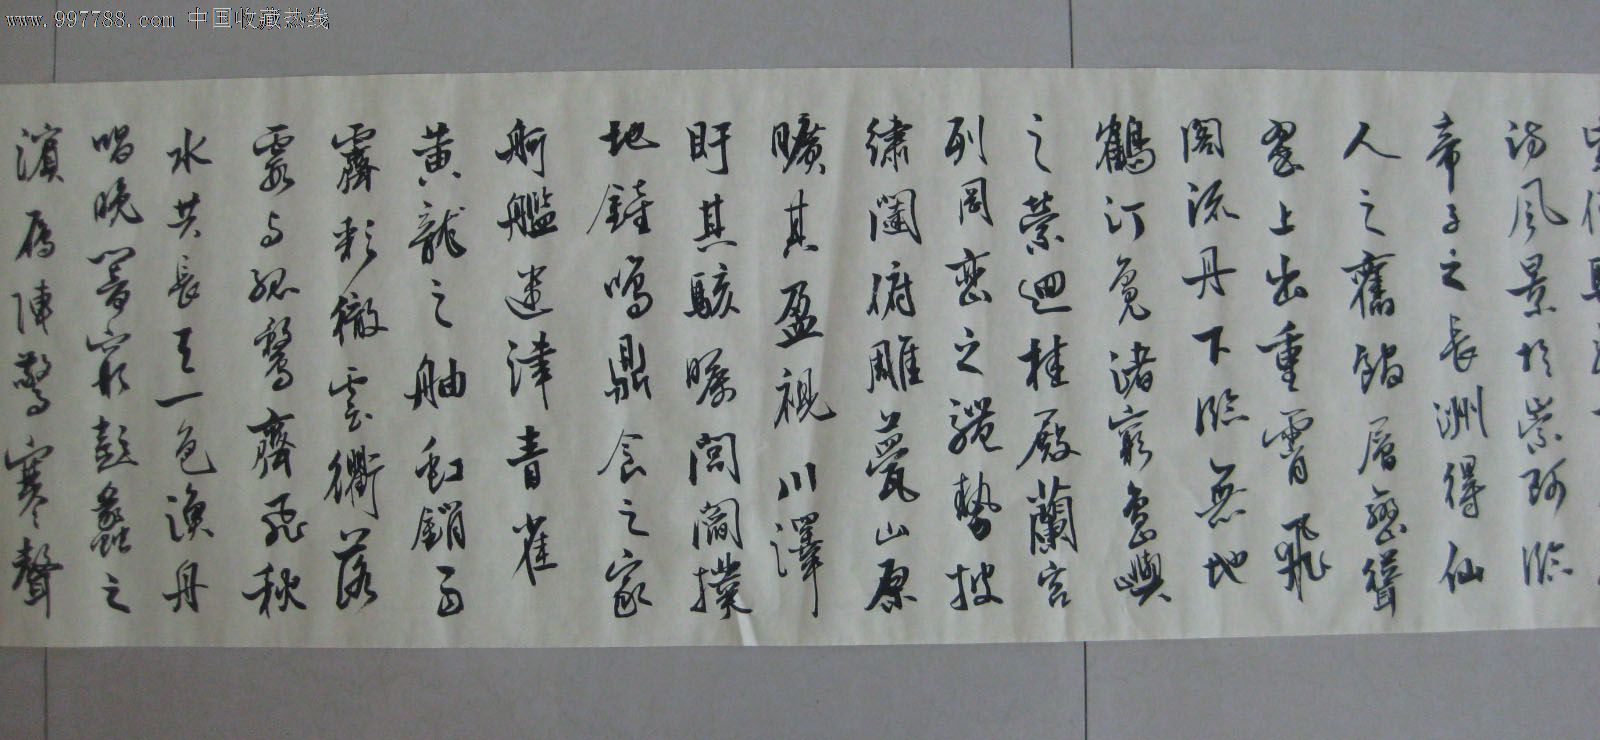 www.997788.com 中国收藏热线
訪風景於崇阿臨
帝子之長洲得仙
人之舊館層巒聳
翠上出重霄飛
閣流丹下臨無地
鶴汀鳧渚窮島嶼
之縈迴桂殿蘭宮
列岡巒之體勢披
繡闥俯雕甍山原
曠其盈視川澤
盱其駭矚閭閻撲
地鐘鳴鼎食之家
舸艦迷津青雀
黃龍之舳虹銷雨
霽彩徹雲衢落
霞與孤鶩齊飛秋
水共長天一色漁舟
唱晚響窮彭蠡之
濱雁陣驚寒聲